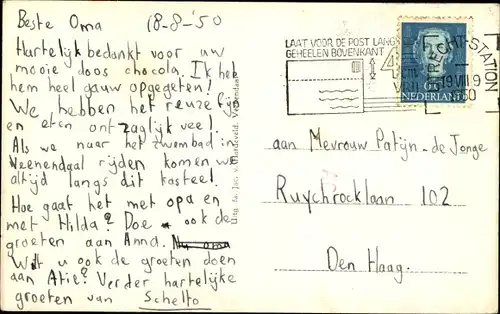 Beste Oma 18-8-'50
Hartelijk bedankt voor uw
mooie doos chocola. Ik heb
hem heel gauw opgegeten!
We hebben het reuze fijn
en eten ontzaglijk veel!
Als we naar het zwembad in
Veenendaal rijden komen we
altijd langs dit kasteel.
Hoe gaat het met opa en
met Hilda? Doe ook de
groeten aan Anna.
Wilt u ook de groeten doen
aan Atie? Verder hartelijke
groeten van Schelto
Uitg. fa. Jac. van Veenendaal
LAAT VOOR DE POST LANGS
GEHEELEN BOVENKANT
UTRECHT-STATION
NEDERLAND
aan Mevrouw Patijn-de Jonge
Ruychrocklaan 102
Den Haag.